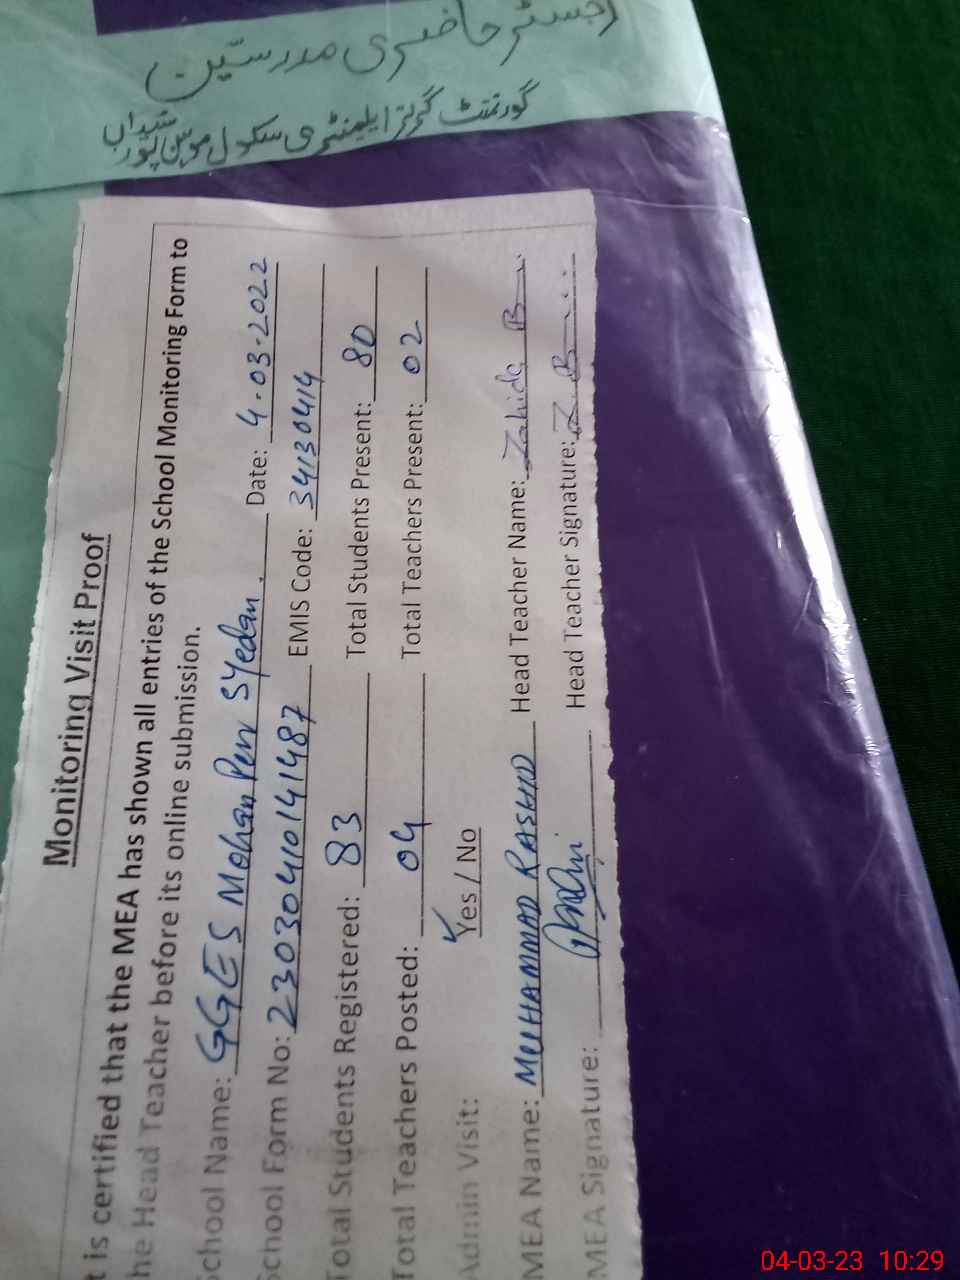 رجسٹر حاضری مدرسین
گورنمنٹ گرلز ایلیمنٹری سکول موہن پور سیداں
Monitoring Visit Proof
t is certified that the MEA has shown all entries of the School Monitoring Form to
he Head Teacher before its online submission.
School Name: GGES Mohan Pur Syedan. Date: 4-03-2022
School Form No: 23030410141487 EMIS Code: 34130414
Total Students Registered: 83 Total Students Present: 80
Total Teachers Posted: 04 Total Teachers Present: 02
Admin Visit: Yes / No
MEA Name: MUHAMMAD RASHID Head Teacher Name: Zahida B
MEA Signature: Head Teacher Signature: Z. B
04-03-23 10:29